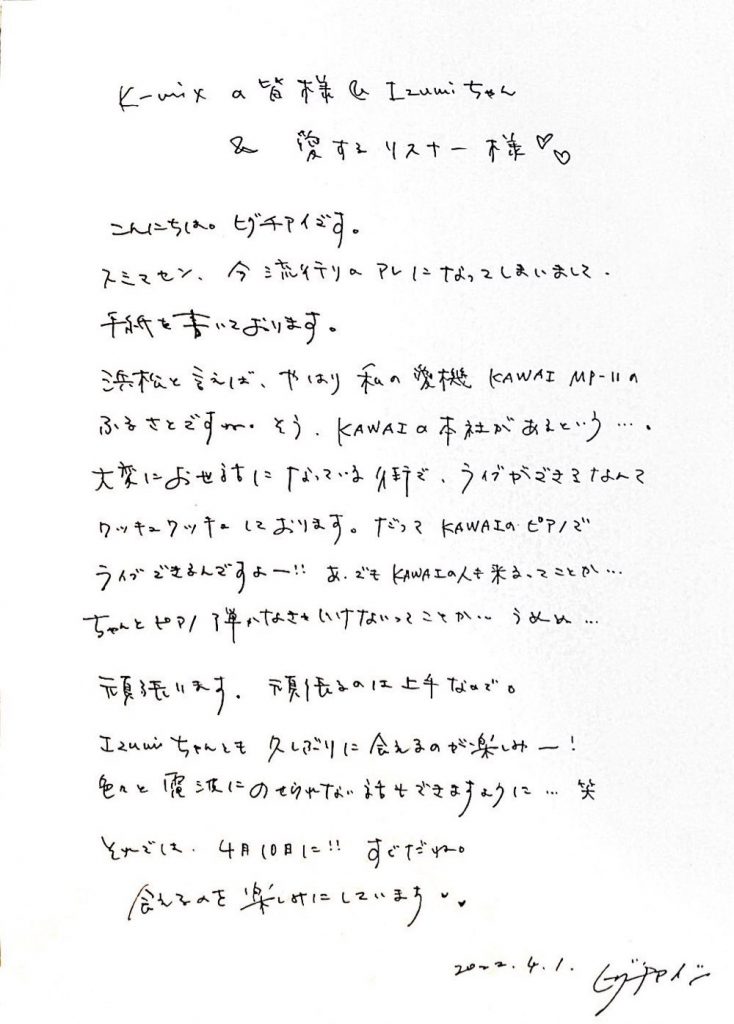 K-mixの皆様 & Izumiちゃん
& 愛するリスナー様♡♡
こんにちは。ヒグチアイです。
スミマセン、今流行リのアレになってしまいまして、
手紙を書いております。
浜松と言えば、やはり私の愛機 KAWAI MP-11の
ふるさとですね。そう、KAWAIの本社があるという…。
大変にお世話になっている街で、ライブができるなんて
ワッキュワッキュしております。だって KAWAIのピアノで
ライブできるんですよー!! あ、でも KAWAIの人も来るってことか…
ちゃんとピアノ弾かなきゃいけないってことか… うぬぬ…
頑張ります。頑張るのは上手なので。
Izumiちゃんとも久しぶりに会えるのが楽しみー!
色々と電波にのせられない話もできますように… 笑
それでは、4月10日に!! すぐだね。
会えるのを楽しみにしています♥♥
2022.4.1. ヒグチアイ